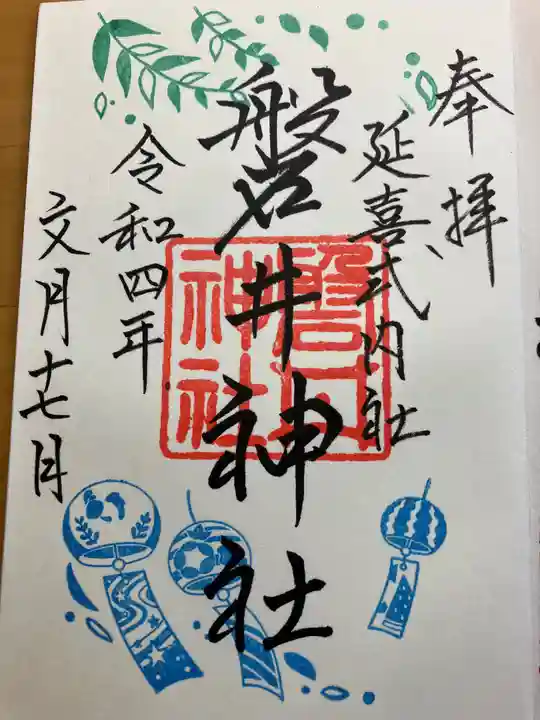 奉拝
延喜式内社
磐井神社
令和四年
文月十七日
磐井
神社